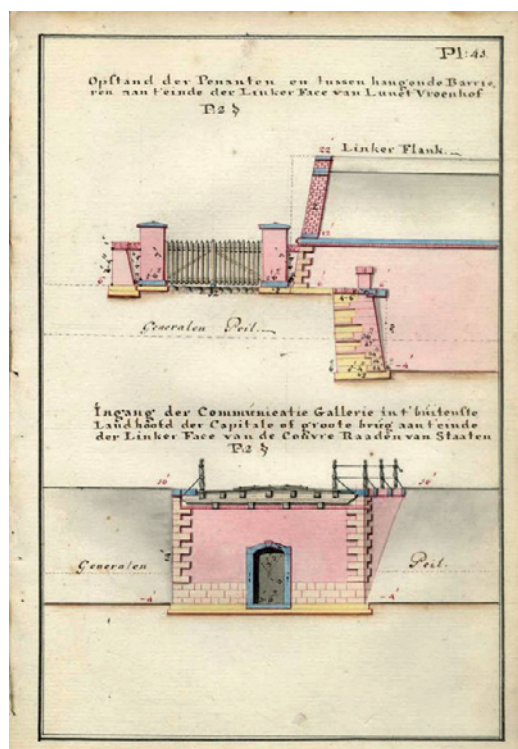 Pl: 43
Opstand der Penanten en tussen hangende Barrie,
ren aan t'einde der Linker Face van Lunet Vroenhof
P: 2
Linker Flank.
22'
12'
Generalen Peil.
-4'
Ingang der Communicatie Gallerie in t' buitenste
Landhoofd der Capitale of groote brug aan t'einde
der Linker Face van de Couvre Raaden van Staaten
P: 2
10'
10'
Generalen
Peil.
-4'
-4'